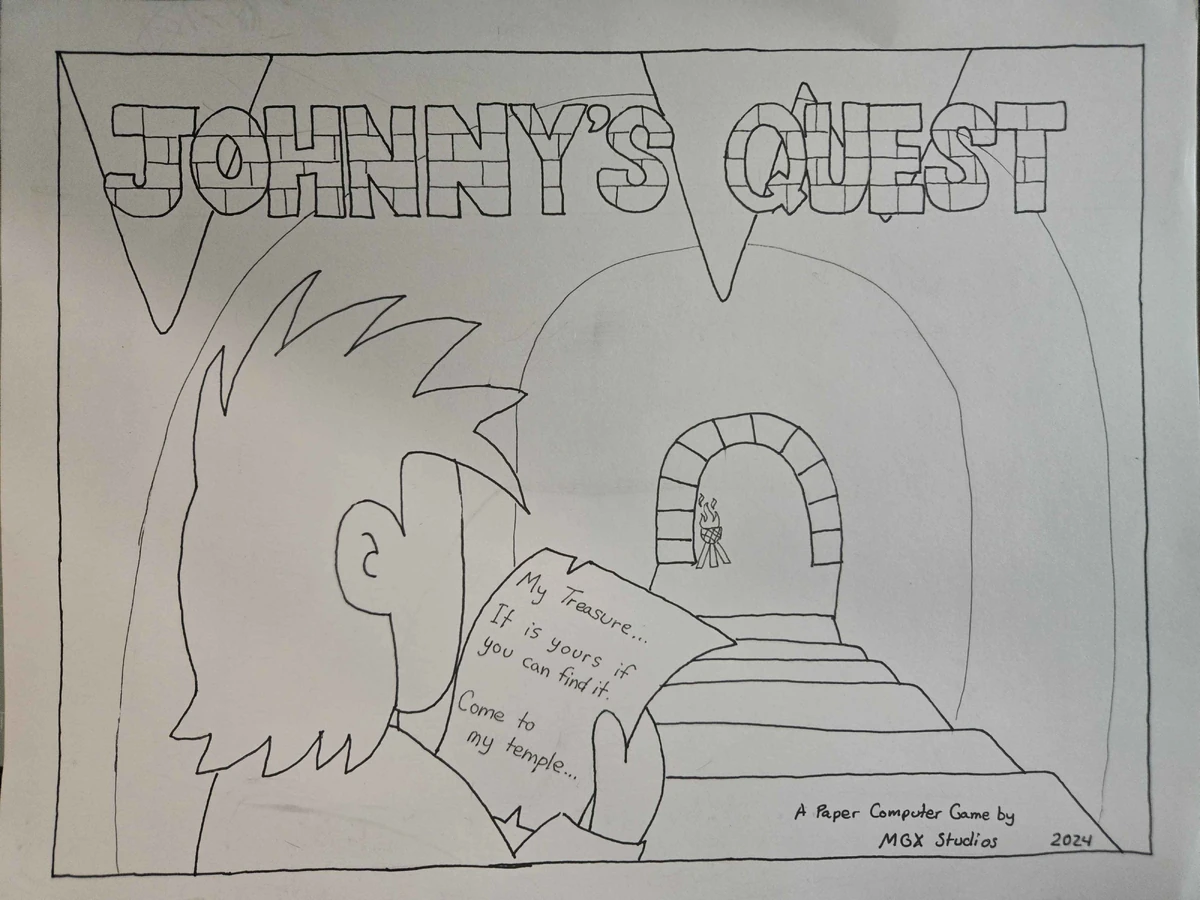 JOHNNY'S QUEST
My Treasure...
It is yours if
you can find it.
Come to
my temple...
A Paper Computer Game by
MGX Studios 2024